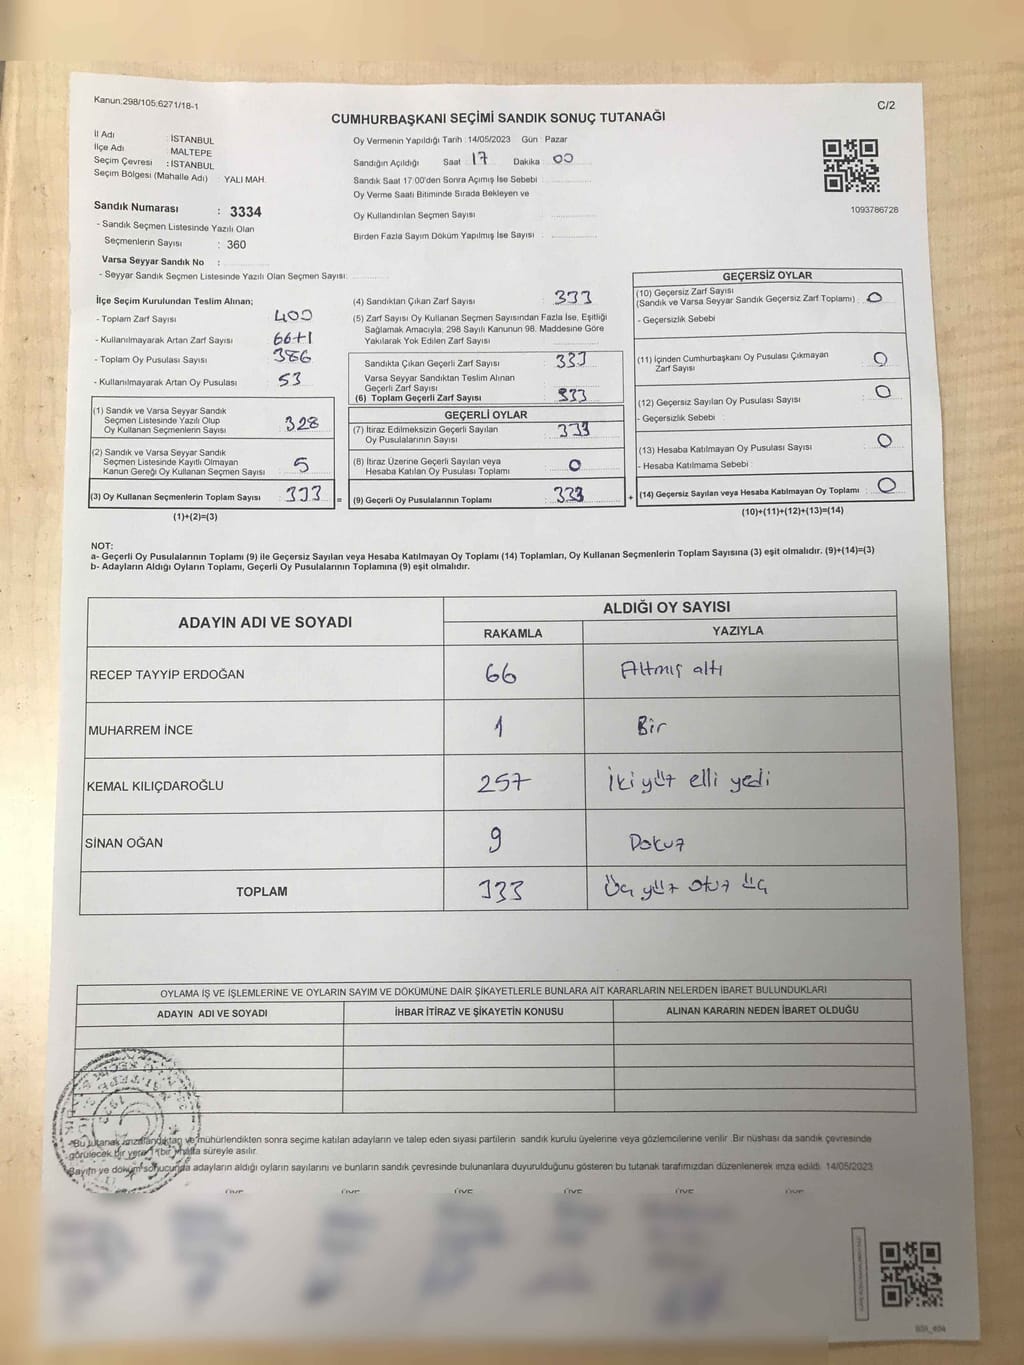 Kanun:298/105:6271/18-1
C/2
CUMHURBAŞKANI SEÇİMİ SANDIK SONUÇ TUTANAĞI
İl Adı : İSTANBUL
İlçe Adı : MALTEPE
Seçim Çevresi : İSTANBUL
Seçim Bölgesi (Mahalle Adı) : YALI MAH.
Oy Vermenin Yapıldığı Tarih : 14/05/2023 Gün : Pazar
Sandığın Açıldığı Saat : 17 Dakika : 00
Sandık Saat 17:00'den Sonra Açımış İse Sebebi :
Oy Verme Saati Bitiminde Sırada Bekleyen ve
Oy Kullandırılan Seçmen Sayısı
Birden Fazla Sayım Döküm Yapılmış İse Sayısı :
1093786728
Sandık Numarası : 3334
- Sandık Seçmen Listesinde Yazılı Olan
Seçmenlerin Sayısı : 360
Varsa Seyyar Sandık No :
- Seyyar Sandık Seçmen Listesinde Yazılı Olan Seçmen Sayısı:
İlçe Seçim Kurulundan Teslim Alınan;
- Toplam Zarf Sayısı : 400
- Kullanılmayarak Artan Zarf Sayısı : 66+1
- Toplam Oy Pusulası Sayısı : 386
- Kullanılmayarak Artan Oy Pusulası : 53
(1) Sandık ve Varsa Seyyar Sandık
Seçmen Listesinde Yazılı Olup
Oy Kullanan Seçmenlerin Sayısı : 328
(2) Sandık ve Varsa Seyyar Sandık
Seçmen Listesinde Kayıtlı Olmayan
Kanun Gereği Oy Kullanan Seçmen Sayısı : 5
(3) Oy Kullanan Seçmenlerin Toplam Sayısı : 333 =
(1)+(2)=(3)
(4) Sandıktan Çıkan Zarf Sayısı : 333
(5) Zarf Sayısı Oy Kullanan Seçmen Sayısından Fazla İse, Eşitliği
Sağlamak Amacıyla; 298 Sayılı Kanunun 98. Maddesine Göre
Yakılarak Yok Edilen Zarf Sayısı :
Sandıkta Çıkan Geçerli Zarf Sayısı : 333
Varsa Seyyar Sandıktan Teslim Alınan
Geçerli Zarf Sayısı :
(6) Toplam Geçerli Zarf Sayısı : 333
GEÇERLİ OYLAR
(7) İtiraz Edilmeksizin Geçerli Sayılan
Oy Pusulalarının Sayısı : 333
(8) İtiraz Üzerine Geçerli Sayılan veya
Hesaba Katılan Oy Pusulası Toplamı : 0
(9) Geçerli Oy Pusulalarının Toplamı : 333 +
GEÇERSİZ OYLAR
(10) Geçersiz Zarf Sayısı
(Sandık ve Varsa Seyyar Sandık Geçersiz Zarf Toplamı) : 0
- Geçersizlik Sebebi :
(11) İçinden Cumhurbaşkanı Oy Pusulası Çıkmayan
Zarf Sayısı : 0
(12) Geçersiz Sayılan Oy Pusulası Sayısı : 0
- Geçersizlik Sebebi :
(13) Hesaba Katılmayan Oy Pusulası Sayısı : 0
- Hesaba Katılmama Sebebi :
(14) Geçersiz Sayılan veya Hesaba Katılmayan Oy Toplamı : 0
(10)+(11)+(12)+(13)=(14)
NOT:
a- Geçerli Oy Pusulalarının Toplamı (9) ile Geçersiz Sayılan veya Hesaba Katılmayan Oy Toplamı (14) Toplamları, Oy Kullanan Seçmenlerin Toplam Sayısına (3) eşit olmalıdır. (9)+(14)=(3)
b- Adayların Aldığı Oyların Toplamı, Geçerli Oy Pusulalarının Toplamına (9) eşit olmalıdır.
ADAYIN ADI VE SOYADI
ALDIĞI OY SAYISI
RAKAMLA YAZIYLA
RECEP TAYYİP ERDOĞAN 66 Altmış altı
MUHARREM İNCE 1 Bir
KEMAL KILIÇDAROĞLU 257 İki yüz elli yedi
SİNAN OĞAN 9 Dokuz
TOPLAM 333 Üç yüz otuz üç
OYLAMA İŞ VE İŞLEMLERİNE VE OYLARIN SAYIM VE DÖKÜMÜNE DAİR ŞİKAYETLERLE BUNLARA AİT KARARLARIN NELERDEN İBARET BULUNDUKLARI
ADAYIN ADI VE SOYADI İHBAR İTİRAZ VE ŞİKAYETİN KONUSU ALINAN KARARIN NEDEN İBARET OLDUĞU
-Bu tutanak imzalandıktan ve mühürlendikten sonra seçime katılan adayların ve talep eden siyasi partilerin sandık kurulu üyelerine veya gözlemcilerine verilir. Bir nüshası da sandık çevresinde
görülecek bir yere 1 (bir) hafta süreyle asılır.
-Sayım ve döküm sonucunda adayların aldığı oyların sayılarını ve bunların sandık çevresinde bulunanlara duyurulduğunu gösteren bu tutanak tarafımızdan düzenlenerek imza edildi. 14/05/2023
ÜYE ÜYE ÜYE ÜYE ÜYE ÜYE